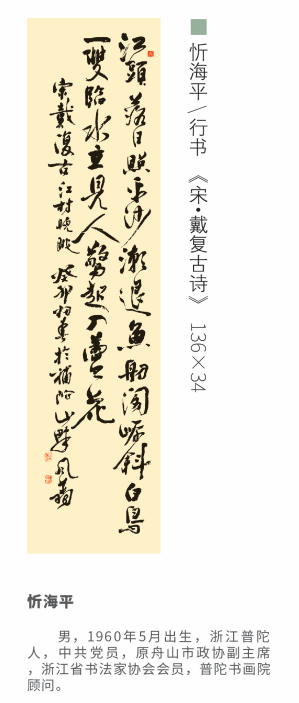 忻海平/行书 《宋·戴复古诗》 136×34
江頭落日照平沙潮退魚舠閣岸斜白鳥
一雙臨水立見人驚起入蘆花
宋戴復古江村晚眺 癸卯初春於補陀山野風齋
忻海平
男，1960年5月出生，浙江普陀
人，中共党员，原舟山市政协副主席
，浙江省书法家协会会员，普陀书画院
顾问。